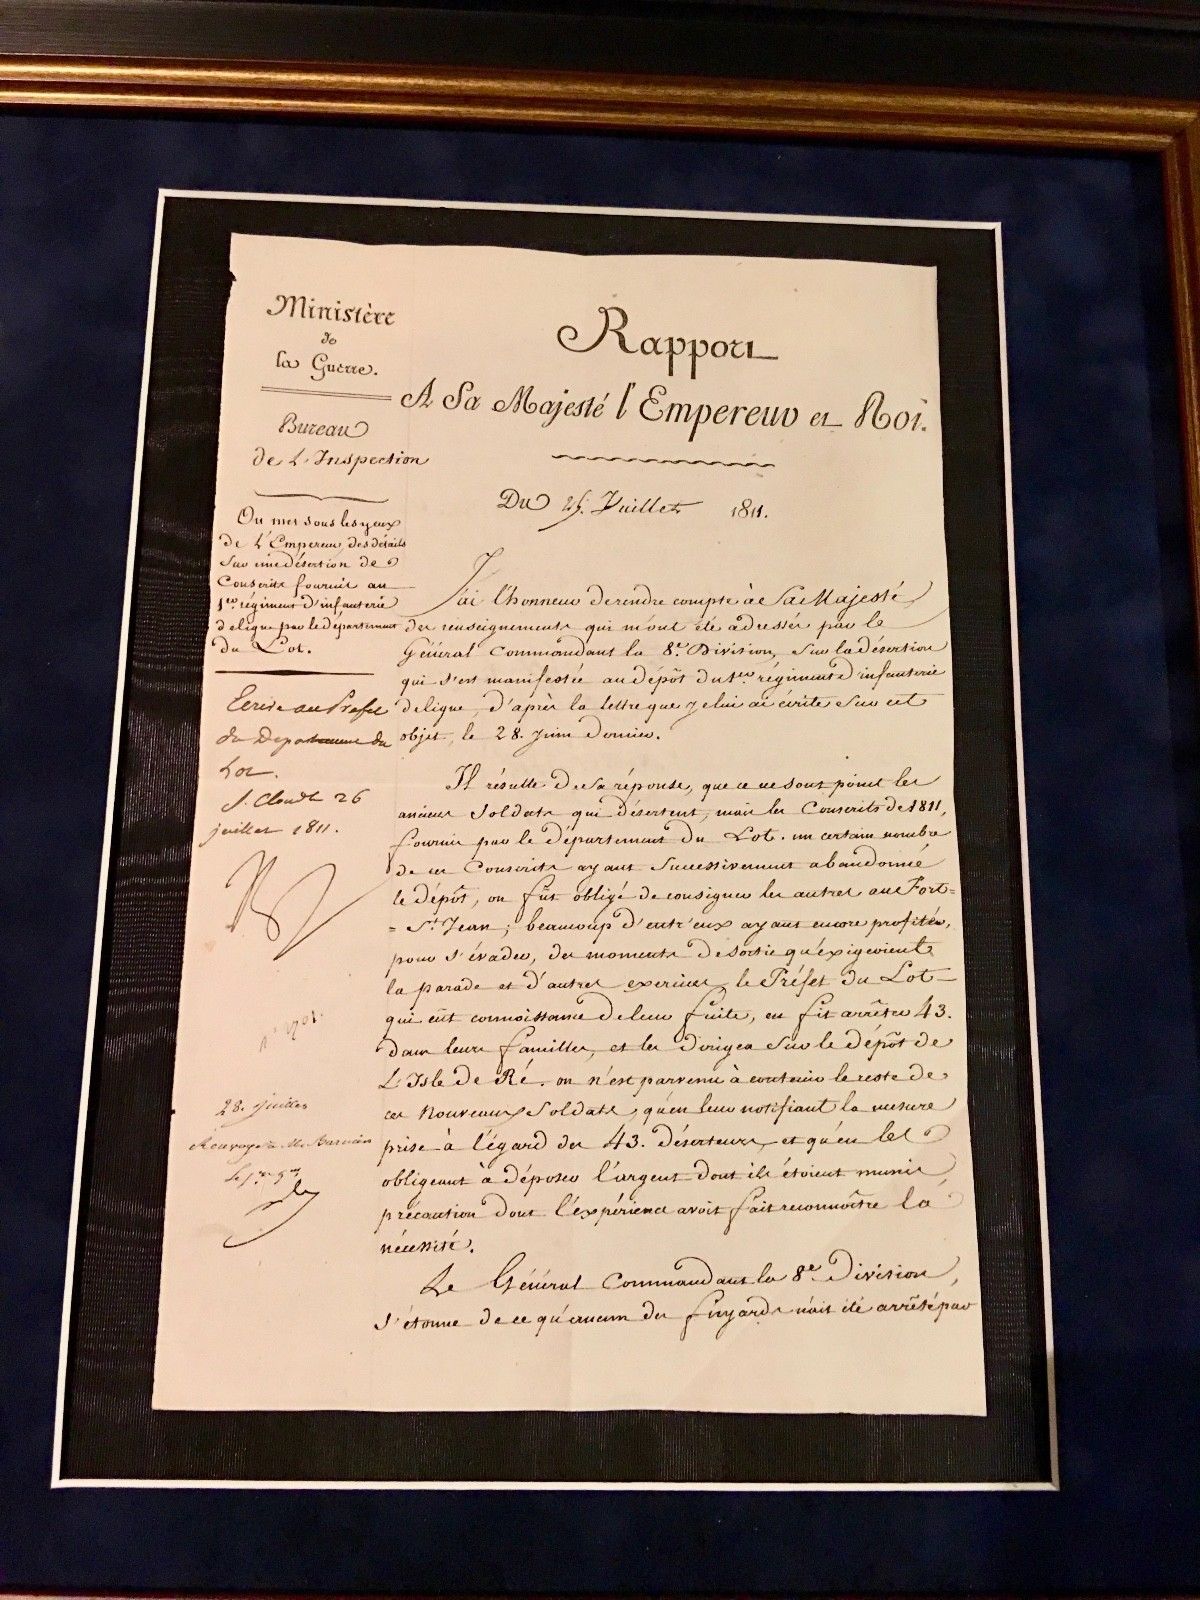 Ministère
de
la Guerre.
Bureau
de L'Inspection
On met sous les yeux
de L'Empereur, des détails
Sur une désertion de
Conscrits fournis au
1er régiment d'infanterie
de ligne par le département
du Lot.
Ecrire au Prefet
du Departement du
Lot.
St. Cloud 26
juillet 1811.
28. juillet
Rapport
A Sa Majesté l'Empereur et Roi.
Du 25. Juillet 1811.
J'ai l'honneur de rendre compte à Sa Majesté
des renseignements qui m'ont été adressés par le
Général Commandant la 8e. Division, Sur la désertion
qui s'est manifestée au dépôt du 1er régiment d'infanterie
de ligne, d'après la lettre que je lui ai écrite Sur cet
objet, le 28. Juin dernier.
Il résulte de Sa réponse, que ce ne sont point les
anciens Soldats qui désertent, mais les Conscrits de 1811,
fournis par le département du Lot. un certain nombre
de ces Conscrits ayant Successivement abandonné
le dépôt, on fut obligé de consigner les autres au Fort=
= St. Jean; beaucoup d'entr'eux ayant encore profité,
pour s'évader, des moments de sortie qu'exigeoient
la parade et d'autres exercices, le Préfet du Lot
qui eût connoissance de leur fuite, en fit arrêter 43.
dans leurs familles, et les dirigea Sur le dépôt de
L'Isle de Ré. on n'est parvenu à contenir le reste de
ces Nouveaux Soldats, qu'en leur notifiant la mesure
prise à l'égard des 43. déserteurs, et qu'en les
obligeant à déposer l'argent dont ils étoient munis
précaution dont l'expérience avoit fait reconnoître la
nécessité.
Le Général Commandant la 8e. Division,
s'étonne de ce qu'aucun des fuyards n'ait été arrêté par